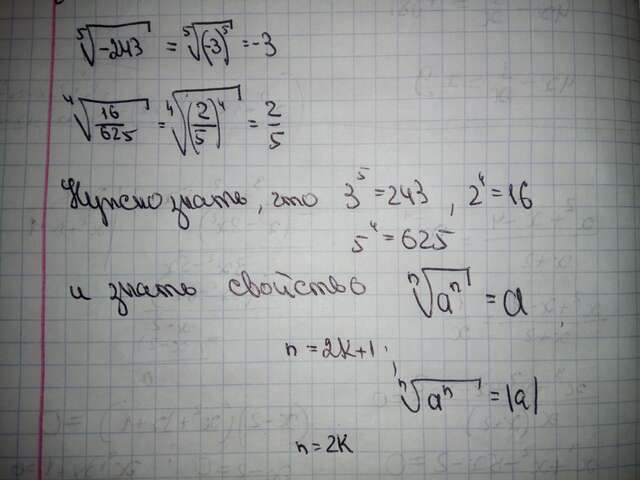 ⁵√-243 = ⁵√(-3)⁵ = -3
⁴√16/625 = ⁴√(2/5)⁴ = 2/5
Нужно знать, что 3⁵ = 243, 2⁴ = 16
5⁴ = 625
и знать свойство ⁿ√aⁿ = a
n = 2k+1
ⁿ√aⁿ = |a|
n = 2k